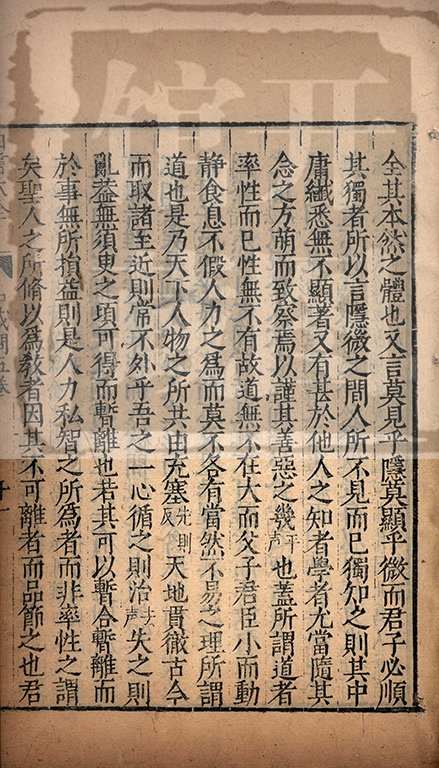 全其本然之體也又言莫見乎隱莫顯乎微而君子必順
其獨者所以言隱微之間人所不見而己獨知之則其中
庸纖悉無不顯著又有甚於他人之知者學者尤當隨其
念之方萌而致察焉以謹其善惡之幾平聲也蓋所謂道者
率性而已性無不有故道無不在大而父子君臣小而動
静食息不假人力之為而莫不各有當然不易之理所謂
道也是乃天下人物之所共由充塞先則反天地貫徹古今
而取諸至近則常不外乎吾之一心循之則治去聲失之則
亂蓋無須臾之頃可得而暫離也若其可以暫合暫離而
於事無所損益則是人力私智之所為者而非率性之謂
矣聖人之所脩以為教者因其不可離者而品節之也君